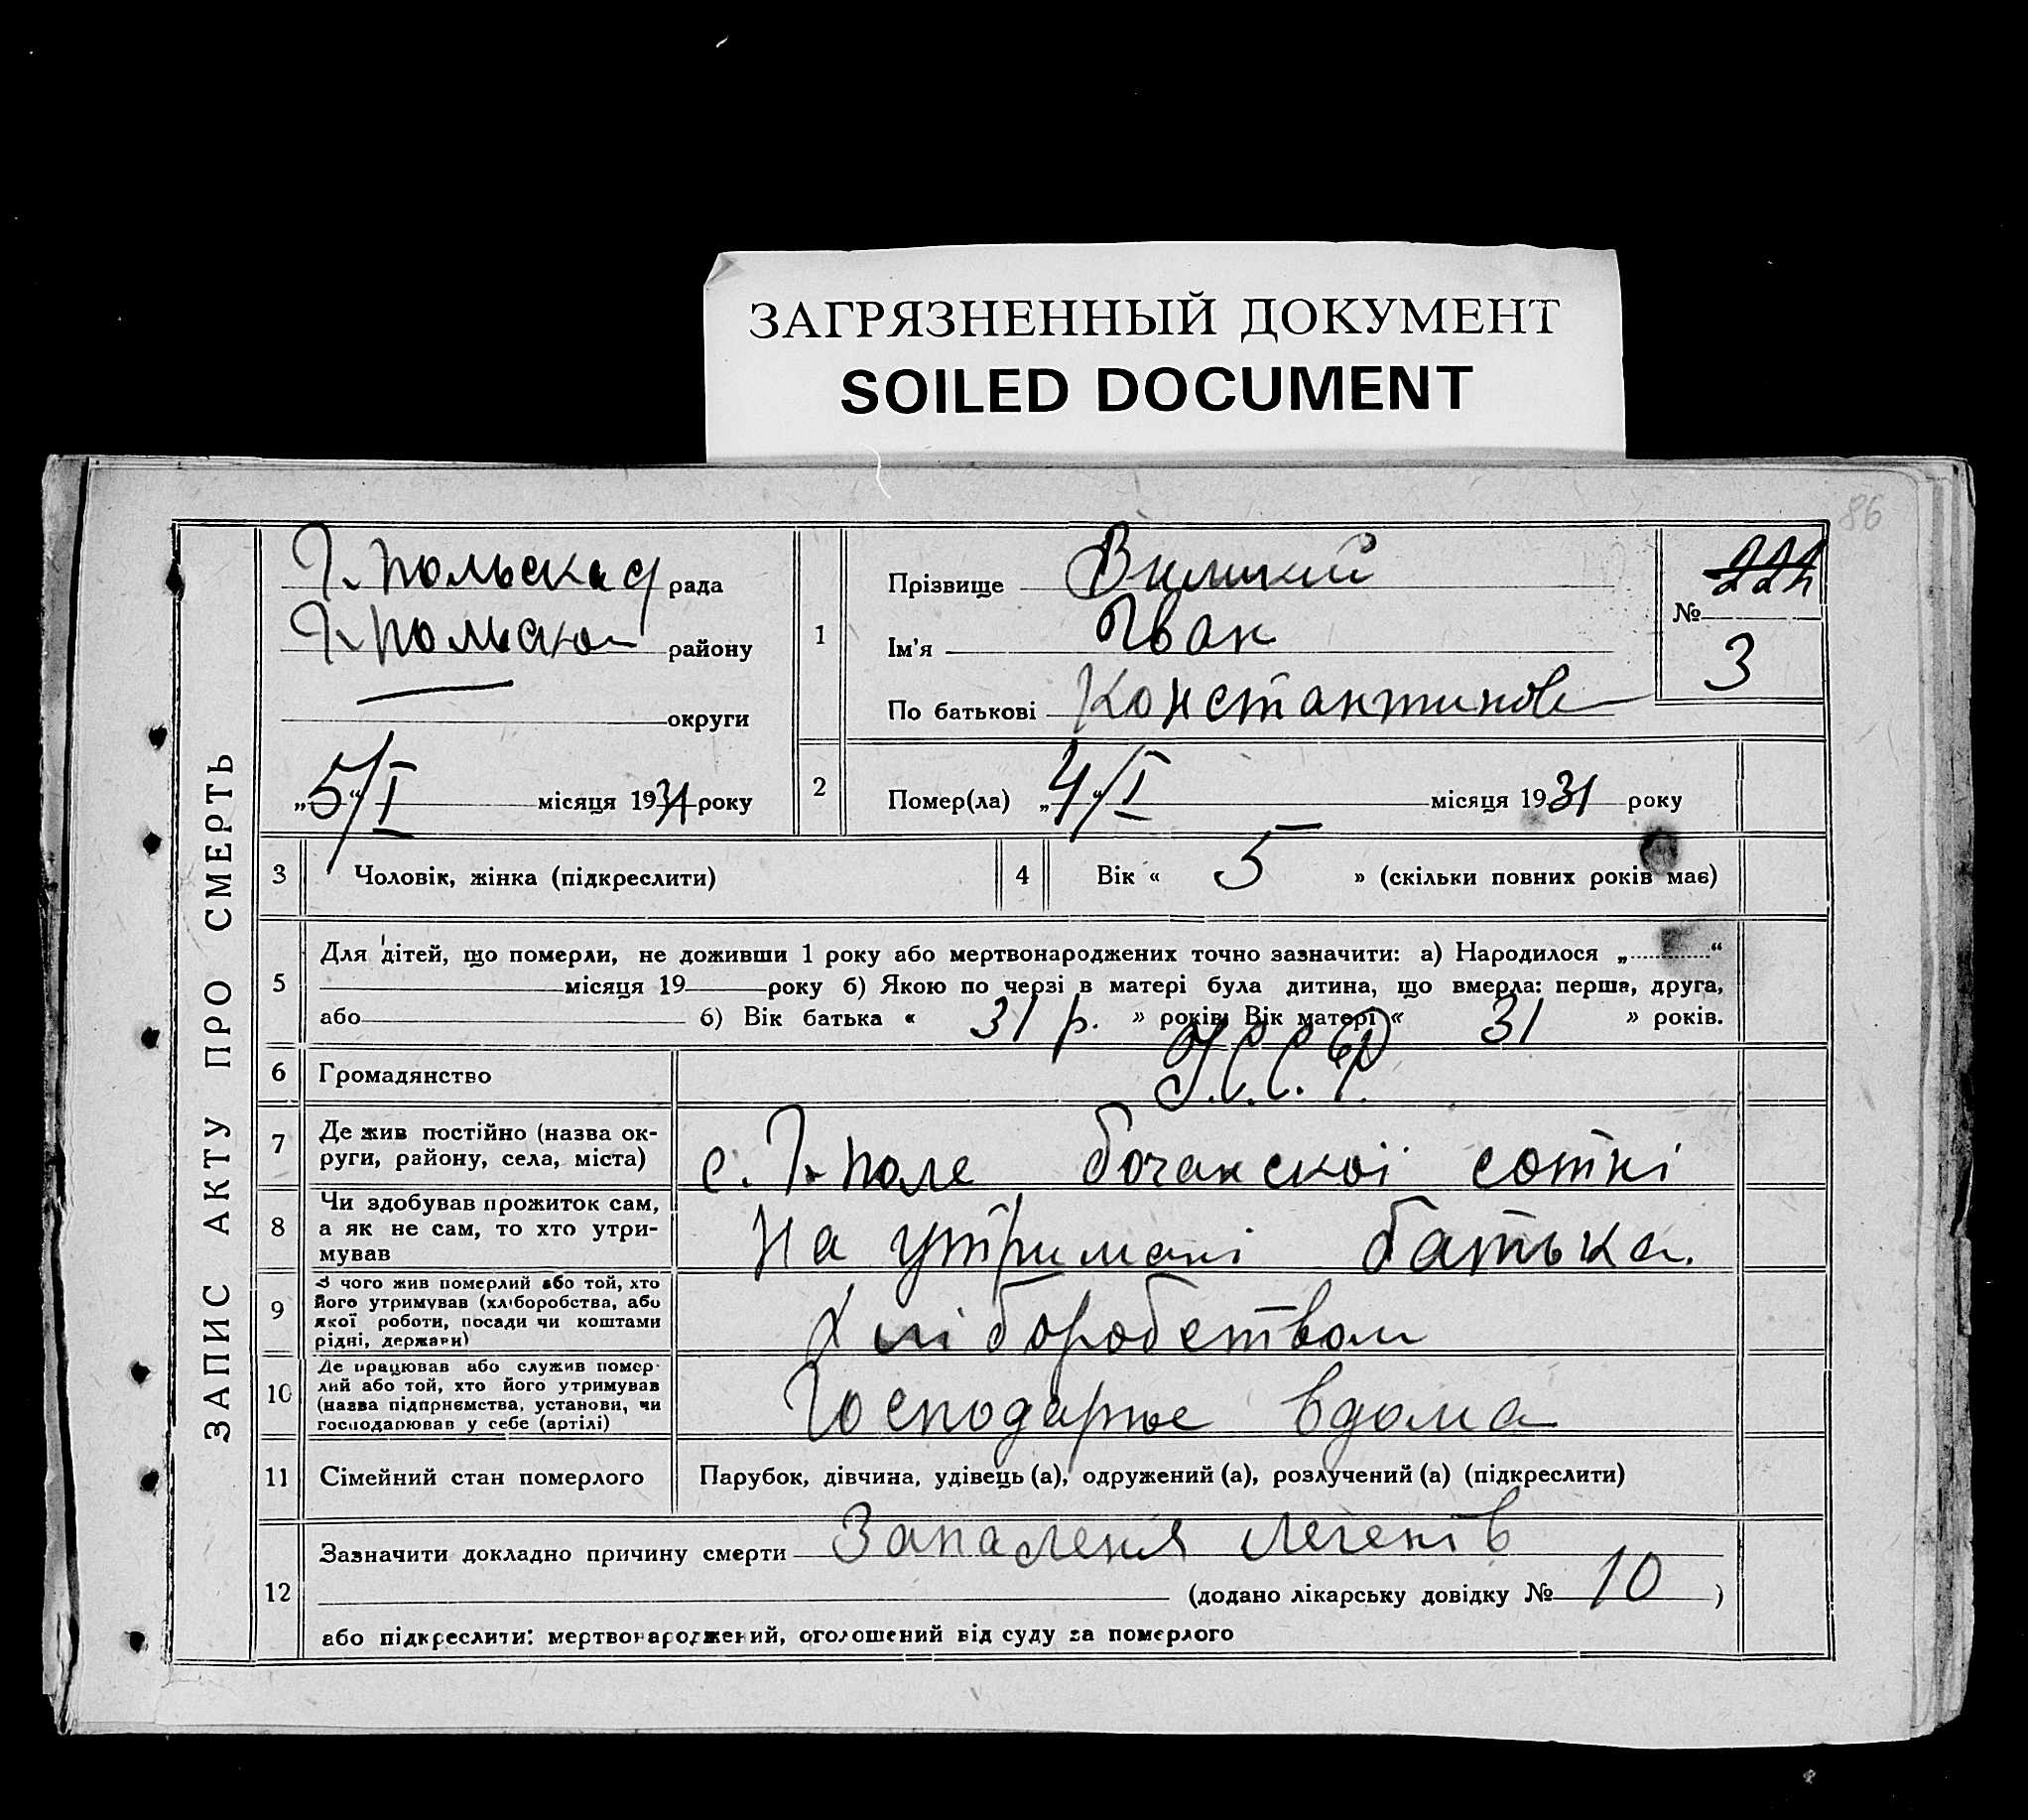 ЗАГРЯЗНЕННЫЙ ДОКУМЕНТ
SOILED DOCUMENT
86
ЗАПИС АКТУ ПРО СМЕРТЬ
Г. Польская рада
Г. Польско району
округи
„5“/I місяця 1931 року
1
Прізвище
Ім'я Іван
По батькові Константинов
№ 224
3
2 Помер(ла) „4“/I місяця 1931 року
3 Чоловік, жінка (підкреслити)
4 Вік « 5 » (скільки повних років має)
5 Для дітей, що померли, не доживши 1 року або мертвонароджених точно зазначити: а) Народилося „ “
місяця 19 року б) Якою по черзі в матері була дитина, що вмерла: перша, друга,
або б) Вік батька « 31 р. » років; Вік матері « 31 » років.
6 Громадянство У.С.С.Р.
7 Де жив постійно (назва ок-
руги, району, села, міста)
с. Г. Поле сотні
8 Чи здобував прожиток сам,
а як не сам, то хто утри-
мував
на утримані батька.
9 З чого жив померлий або той, хто
його утримував (хліборобства, або
якої роботи, посади чи коштами
рідні, держави)
Хліборобством
10 Де працював або служив помер-
лий або той, хто його утримував
(назва підприємства, установи, чи
господарював у себе (артілі)
Господарює вдома
11 Сімейний стан померлого
Парубок, дівчина, удівець (а), одружений (а), розлучений (а) (підкреслити)
12 Зазначити докладно причину смерти Запаленія легенів
(додано лікарську довідку № 10 )
або підкреслити: мертвонароджений, оголошений від суду за померлого